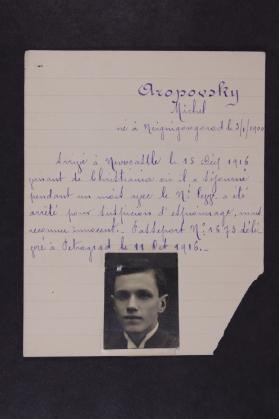 Aropovsky
Michel
né à Neignigongorod le 3/1/1900
Arrivé à Newcastle le 15 Déc 1916
venant de Christiania où il a séjourné
pendant un mois avec le Nº a été
arrêté pour suspicion d'espionnage, mais
reconnu innocent. Passeport Nº 1573 déli-
vré à Petrograd le 11 Oct 1916.